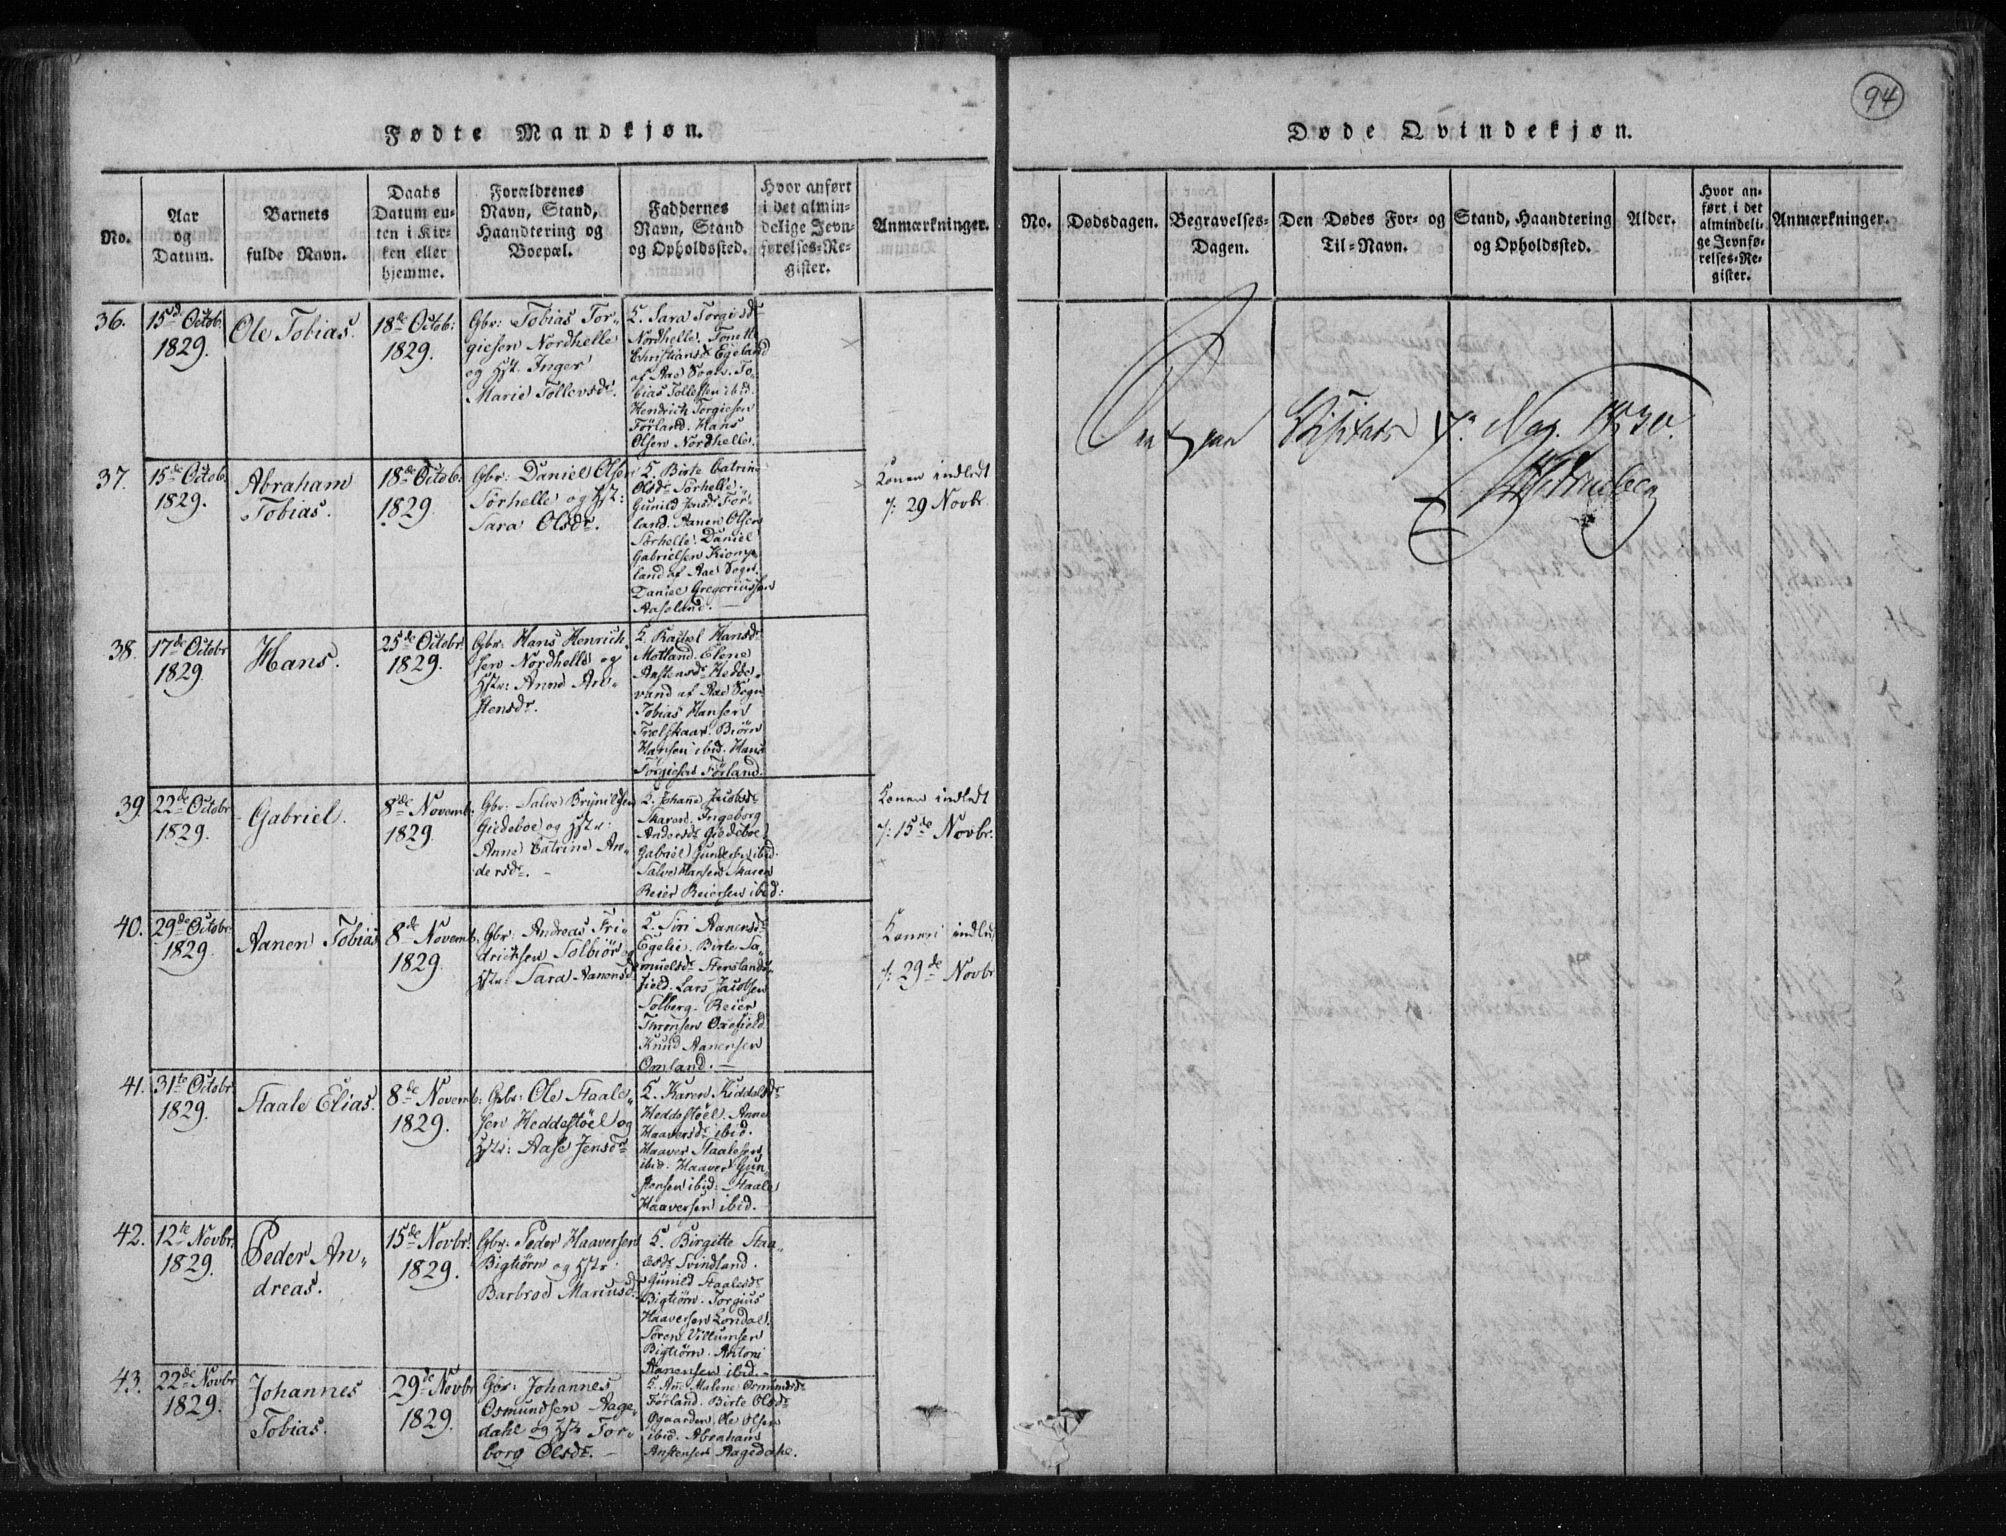 94
Fødte Mandkjøn.
No.
Aar
og
Datum.
Barnets
fulde Navn.
Daabs
Datum en-
ten i Kir-
ken eller
hjemme.
Forældrenes
Navn, Stand,
Haandtering og
Boepæl.
Faddernes
Navn, Stand
og Opholdssted.
Hvor anført
i det almin-
delige Jevn-
førelses-Re-
gister.
Anmærkninger.
36.
15de Octob.
1829.
Ole Tobias.
18de Octob:
1829.
Gbr: Tobias Tor-
giesen Nordhelle
og Hst. Inger
Marie Tollevsdr.
F. Sara Torgiesdr
Nordhelle. Tomine
Christiansdr Egeland
af Aae Sogn. To-
bias Tollefsen ibid.
Hendrich Torgiesen
Førland. Hans
Olsen Nordhelle.
37.
15de Octob.
1829.
Abraham
Tobias.
18de Octob.
1829.
Gbr: Daniel Olsen
Sørhelle og Hst:
Sara Olsdr.
F. Birte Catrine
Olsdr Sørhelle.
Gunild Jensdr Før-
land. Aanen Olsen
Sørhelle. Daniel
Gabrielsen
land af Aae Sogn.
Daniel Gregoriussen
Aaseland.
Konen indledt
7: 29 Novbr.
38.
17de Octobr
1829.
Hans.
25de Octobr.
1829.
Gbr: Hans Henrich-
sen Nordhelle og
Hstr: Anne An-
stensdr.
F. Rachel Hansdr
Motland. Elene
Anstensdr Hedde-
vand af Aae Sogn
Tobias Hansen
Trælskaar. Biørn
Hansen ibid. Hans
Torgiesen Førland.
39.
22de Octobr
1829.
Gabriel.
8de Novemb.
1829.
Gbr: Salve Brynilsen
Giedeboe og Hstr:
Anne Catrine An-
dersdr.
F. Johane Jacobsdr
Skaren. Ingeborg
Andersdr Giedeboe
Gabriel Gundersen ibid.
Salve Hansen Skaren
Reier Reiersen ibid:
Konen indledt
7: 15de Novbr.
40.
29de Octobr.
1829.
Aanen Tobias
8de Novemb.
1829.
Gbr: Andreas Fri-
drichsen Solbiør og
Hstr: Sara Aanensdr
F. Siri Aanensdr
Egelie. Birte Sa-
muelsdr Stenslands-
field. Lars Jacobsen
Solberg. Reier
Thronsen Oxefield
Knud Aanensen
Omland.
Konen indledt
7: 29de Novbr
41.
31te Octobr.
1829.
Staale Elias.
8de Novemb.
1829.
Gbr: Ole Staale-
sen Heddestøel og
Hstr: Aase Jensdr
F. Karen Kiddelsdr
Heddestøel. Anne
Haaversdr ibid.
Haaver Staalesen
ibid. Haaver Gun-
stensen ibid: Staale
Haaversen ibid.
42.
12te Novbr.
1829.
Peder An-
dreas.
15de Novbr.
1829.
Gbr: Peder Haaversen
Bigtiørn og Hstr
Barbroe Mariusdr
F. Birgitte Staa-
lesdr Svindland.
Gunild Staalesdr
Bigtiørn. Torgius
Haaversen Londal.
Søren Villumsen
Bigtiørn. Antoni
Aanensen ibid.
43.
22de Novbr
1829.
Johannes
Tobias.
29de Novbr
1829.
Gbr: Johannes
Osmundsen Aage-
dahl og Hstr Tor-
borg Olsdr.
F. Ane Malene Osmundsdr
Førland. Birte Olsdr
Øgaarden. Ole Olsen
ibid. Abraham
Anstensen Aagedahl.
Døde Qvindekjøn.
No.
Dødsdagen.
Begravelses-
Dagen.
Den Dødes For- og
Til-Navn.
Stand, Haandtering
og Opholdssted.
Alder.
Hvor an-
ført i det
almindeli-
ge Jevnfø-
relses-Re-
gister.
Anmærkninger.
Visitats 7 May 1830.